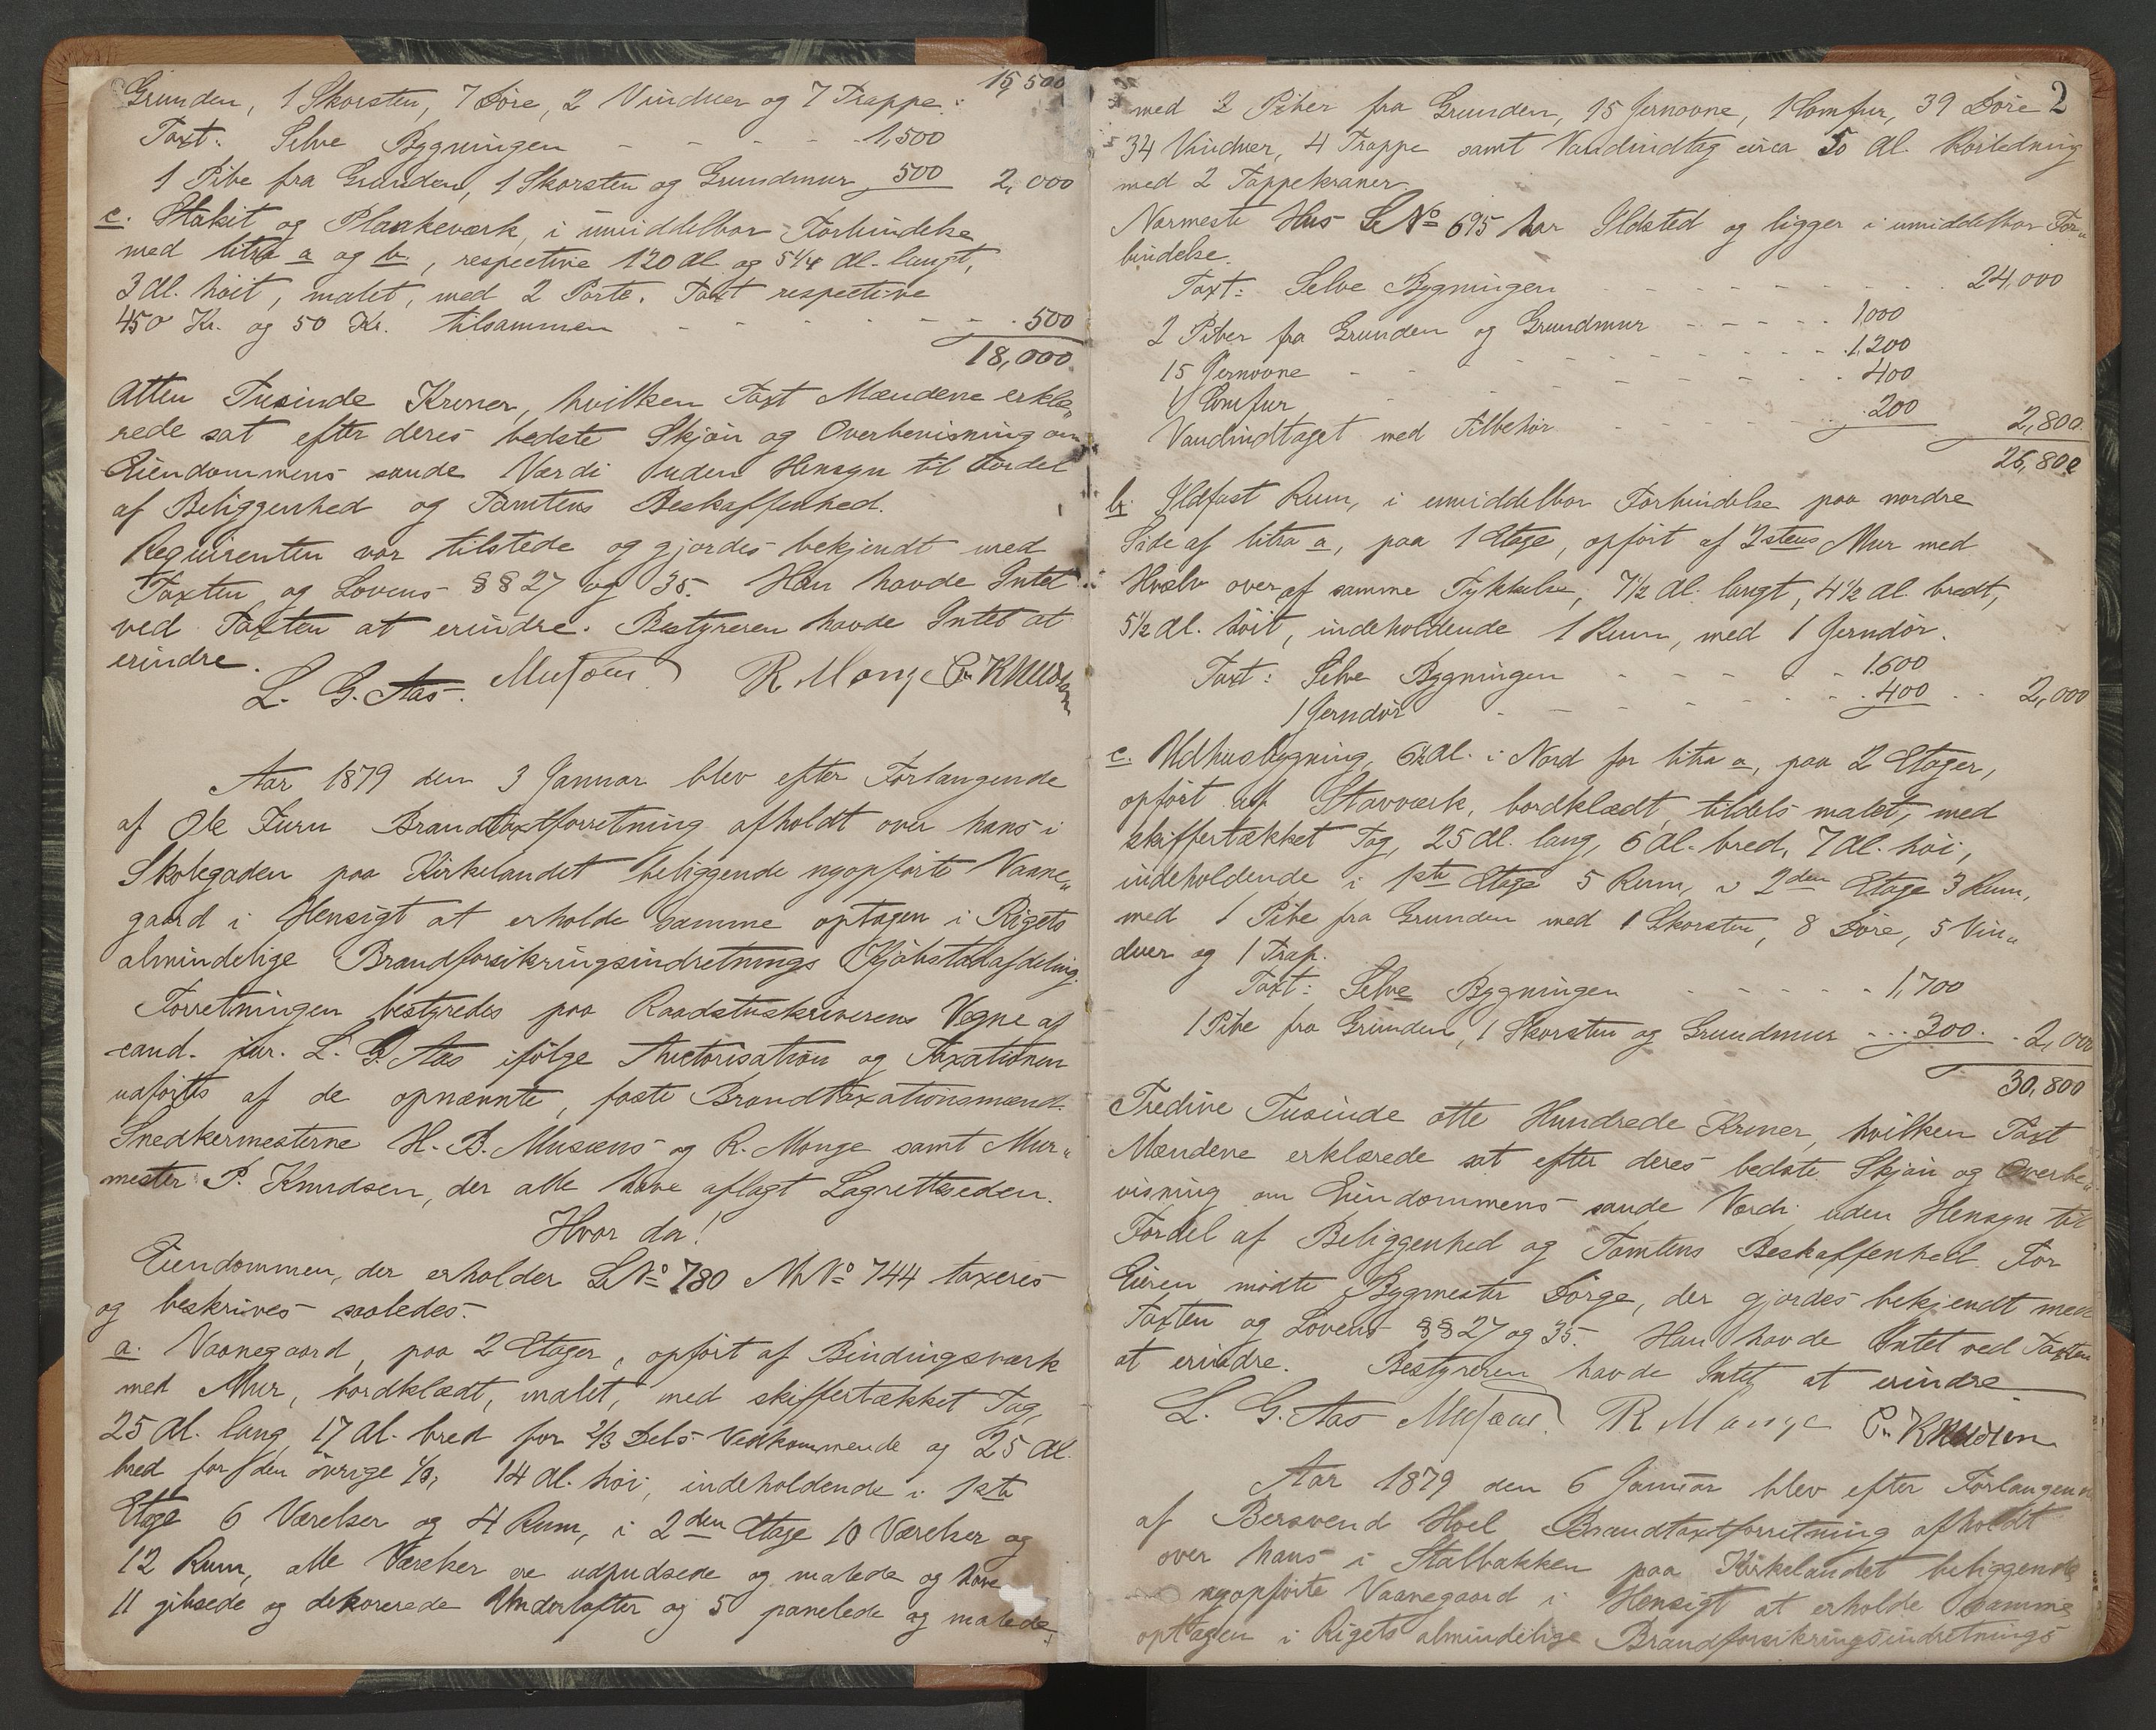 15,500
Grunden, 1 Skorsten, 7 Döre, 2 Vinduer og 7 Trappe:
Taxt: Selve Bygningen - - - - 1,500
1 Pibe fra Grunden, 1 Skorsten og Grundmur 500 2,000
c. Stakit og Plankeværk, i umiddelbar Forbindelse
med litra a og b., respective 120 Al. og 5 1/4 Al. langt,
3 Al. höit, malet, med 2 Porte. Taxt respective
450 Kr. og 50 Kr. tilsammen - - - - - - 500
18,000.
Atten Tusinde Kroner, hvilken Taxt Mændene erklæ„
rede sat efter deres bedste Skjön og Overbevisning om
Eiendommens sande Værdi uden Hensyn til Fordel
af Beliggenhed og Tomtens Beskaffenhed.
Requirenten var tilstede og gjordes bekjendt med
Taxten og Lovens §§ 27 og 35. Han havde Intet
ved Taxten at erindre. Bestyreren havde Intet at
erindre.
L. G. Aas. Musæus R Monge P. Knudsen
Aar 1879 den 3 Januar blev efter Forlangende
af Ole Furu Brandtaxtforretning afholdt over hans i
Skolegaden paa Kirkelandet beliggende nyopförte Vaane„
gaard i Hensigt at erholde samme optagen i Rigets
almindelige Brandforsikringsindretnings Kjöbstadafdeling.
Forretningen bestyredes paa Raadstuskriverens Vegne af
cand. jur. L. G. Aas ifölge Autorisation og Taxationen
udförtes af de opnævnte, faste Brandtaxationsmænd
Snedkermesterne H. B. Musæus og R. Monge samt Mur„
mester P. Knudsen, der alle have aflagt Lagretteseden.
Hvor da!
Eiendommen, der erholder LNo 780 MNo 744 taxeres
og beskrives saaledes:
a. Vaanegaard, paa 2 Etager, opfört af Bindingsværk
med Mur, bordklædt, malet, med skiffertækket Tag,
25 Al. lang, 17 Al. bred for 2/3 Dels Vedkommende og 25 Al.
bred for den övrige 1/3, 14 Al. höi, indeholdende i 1ste
Etage 6 Værelser og 4 Rum, i 2den Etage 10 Værelser og
12 Rum, alle Værelser ere udpudsede og malede og have
11 gibsede og dekorerede Underlofter og 5 panelede og malede,
2
med 2 Piber fra Grunden, 15 Jernovne, 1 Comfur, 39 Döre
34 Vinduer, 4 Trappe samt Vandindtag circa 50 Al. Rörledning
med 2 Tappekraner.
Nærmeste Hus LNo 695 har Ildsted og ligger i umiddelbar For„
bindelse.
Taxt: Selve Bygningen - - - - - - - - 24,000
2 Piber fra Grunden og Grundmur - - - - - 1,000
15 Jernovne - - - - - - - - 1,200
1 Comfur - - - - - - - 400
Vandindtaget med Tilbehör - - - - - 200 2,800.
26,800
b. Ildfast Rum, i umiddelbar Forbindelse paa nordre
Side af litra a, paa 1 Etage, opfört af 2 stens Mur med
Hvælv over af samme Tykkelse, 7 1/2 Al. langt, 4 1/2 Al. bredt,
5 1/2 Al. höit, indeholdende 1 Rum, med 1 Jerndör.
Taxt: Selve Bygningen - - - - - 1,600
1 Jerndör - - - - - - - 400 - - 2,000
c. Udhusbygning, 6 1/2 Al. i Nord for litra a, paa 2 Etager,
opfört af Stavværk, bordklædt, tildels malet, med
skiffertækket Tag, 25 Al. lang, 6 Al. bred, 7 Al. höi,
indeholdende i 1ste Etage 5 Rum, i 2den Etage 3 Rum,
med 1 Pibe fra Grunden med 1 Skorsten, 8 Döre, 5 Vin„
duer og 1 Trap.
Taxt: Selve Bygningen - - - - - - 1,700
1 Pibe fra Grunden, 1 Skorsten og Grundmur - - - 300. - 2,000
30,800
Tredive Tusinde otte Hundrede Kroner, hvilken Taxt
Mændene erklærede sat efter deres bedste Skjön og Overbe„
visning om Eiendommens sande Værdi uden Hensyn til
Fordel af Beliggenhed og Tomtens Beskaffenhed. For
Eieren mödte Bygmester Dörge, der gjordes bekjendt med
Taxten og Lovens §§ 27 og 35. Han havde Intet ved Taxten
at erindre. Bestyreren havde Intet at erindre
L. G. Aas Musæus R Monge P. Knudsen
Aar 1879 den 6 Januar blev efter Forlangende
af Bersvend Hoel Brandtaxtforretning afholdt
over hans i Stalbakken paa Kirkelandet beliggende
nyopförte Vaanegaard i Hensigt at erholde samme
optagen i Rigets almindelige Brandforsikringsindretnings